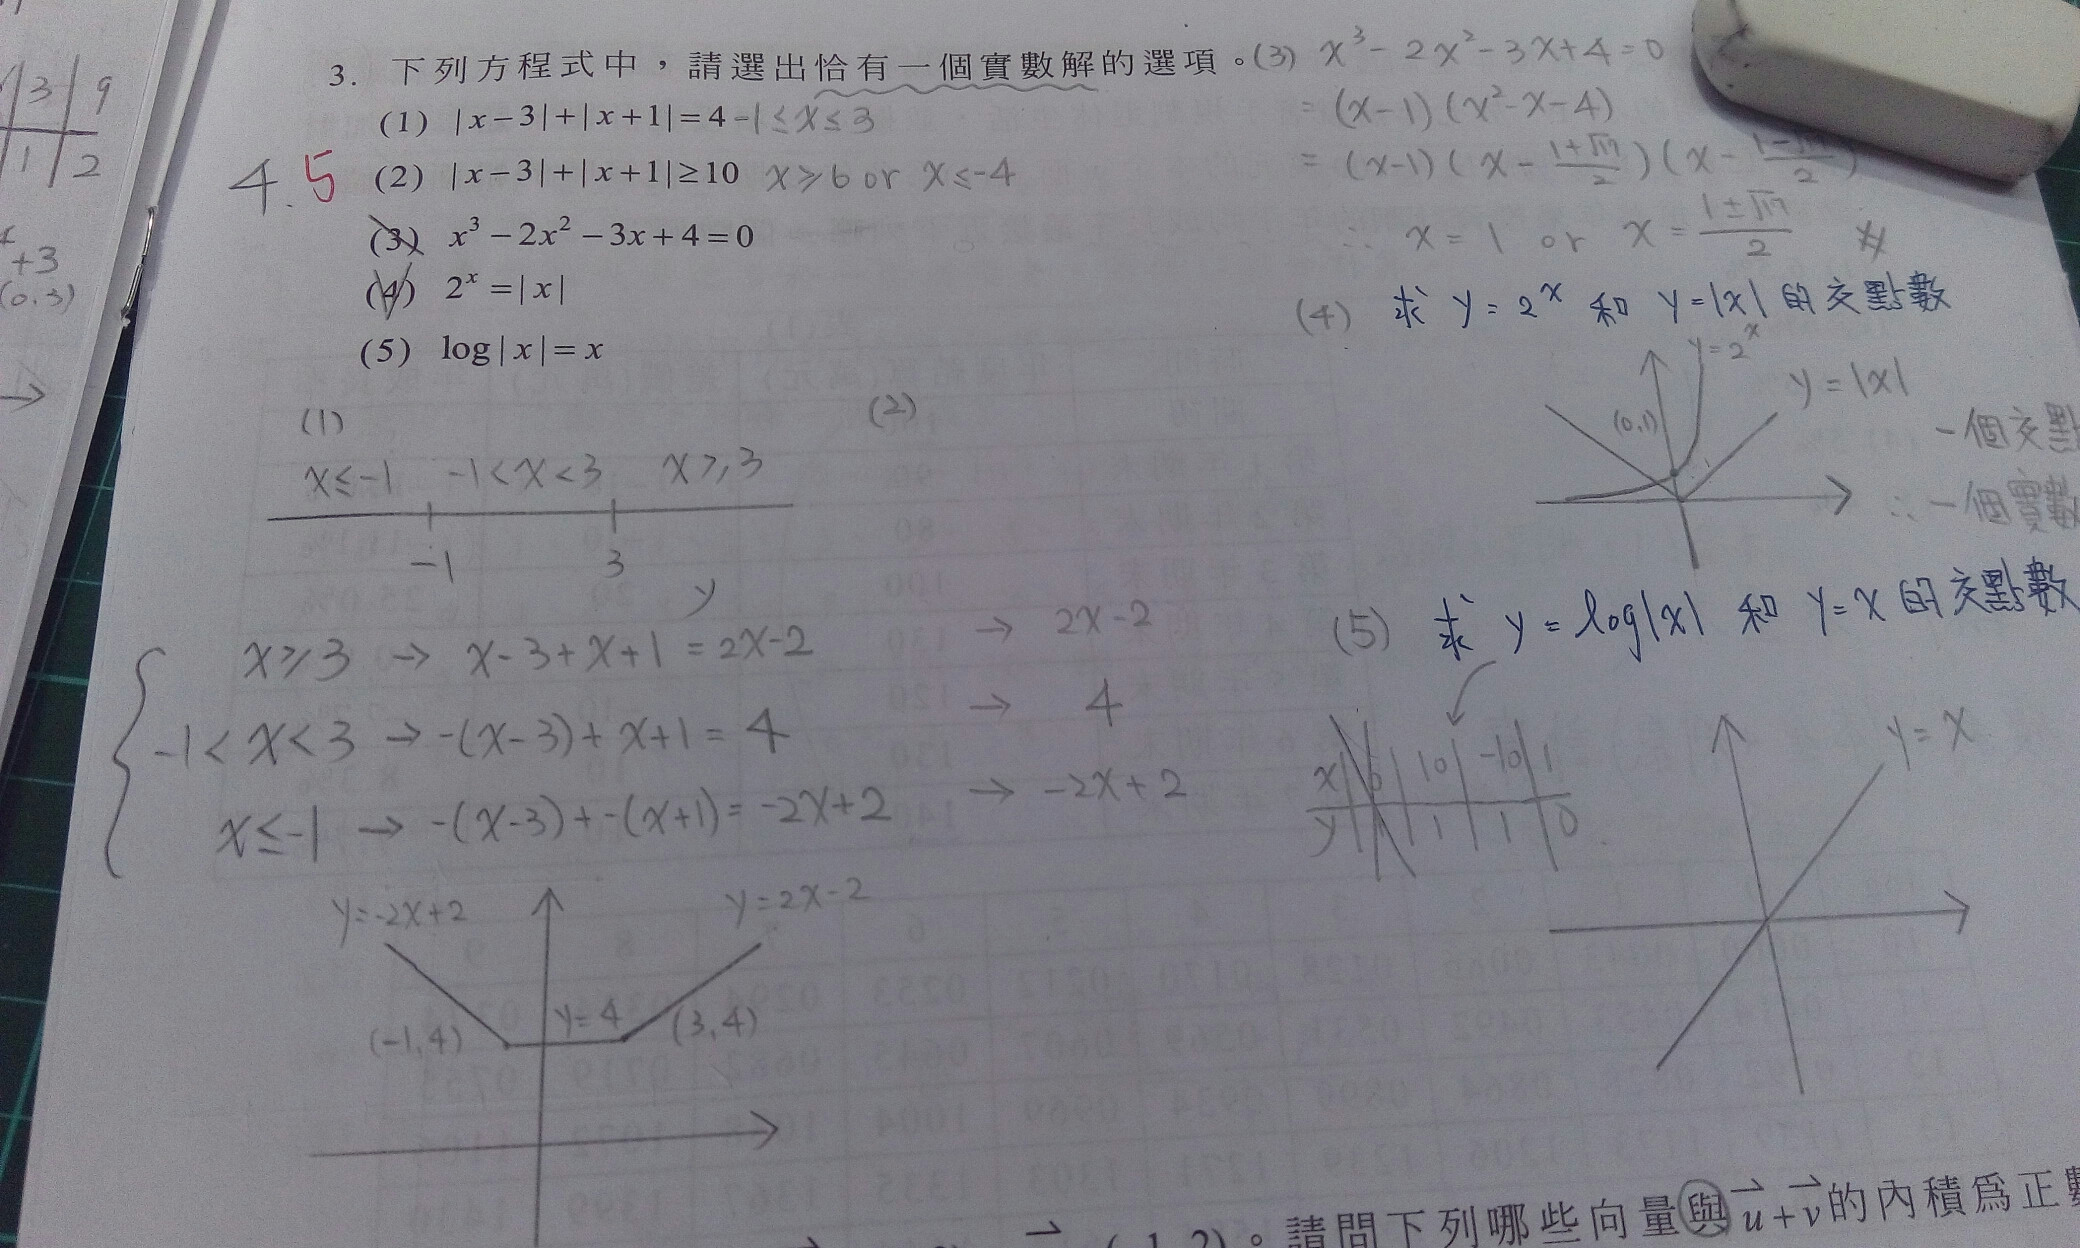 3 9
1 2
+3
(0.3)
3. 下列方程式中，請選出恰有一個實數解的選項。
(1) |x-3|+|x+1|=4 -1≤x≤3
4.5
(2) |x-3|+|x+1|≥10 x≥6 or x≤-4
(3) x³-2x²-3x+4=0
(4) 2ˣ=|x|
(5) log|x|=x
(3) x³-2x²-3x+4=0
=(x-1)(x²-x-4)
=(x-1)(x-(1+√17)/2)(x-(1-√17)/2)
∴ x=1 or x=(1±√17)/2 #
(4) 求 y=2ˣ 和 y=|x| 的交點數
y=2ˣ
y=|x|
(0,1)
一個交點
∴一個實數
(5) 求 y=log|x| 和 y=x 的交點數
x 0 10 -10 1
y 1 1 0
y=x
(1)
x≤-1 -1<x<3 x≥3
-1 3
y
x≥3 → x-3+x+1=2x-2
-1<x<3 → -(x-3)+x+1=4
x≤-1 → -(x-3)+-(x+1)=-2x+2
y=-2x+2 y=2x-2
(-1,4) y=4 (3,4)
(2)
→ 2x-2
→ 4
→ -2x+2
請問下列哪些向量與u+v的內積為正數